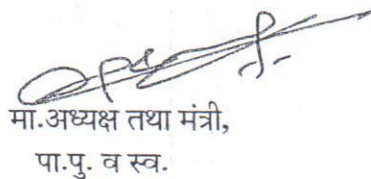 मा.अध्यक्ष तथा मंत्री,
पा.पु. व स्व.